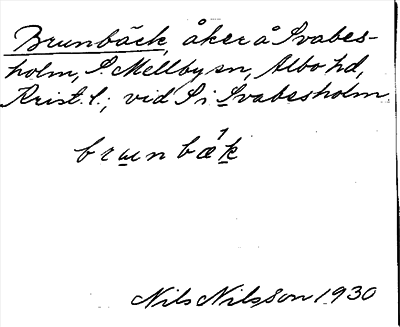 Brunbäck, åker å Svabes-
holm, S. Mellby sn, Albo hd,
Krist. l.; vid S i Svabesholm
brunbæ´k
Nils Nilsson 1930